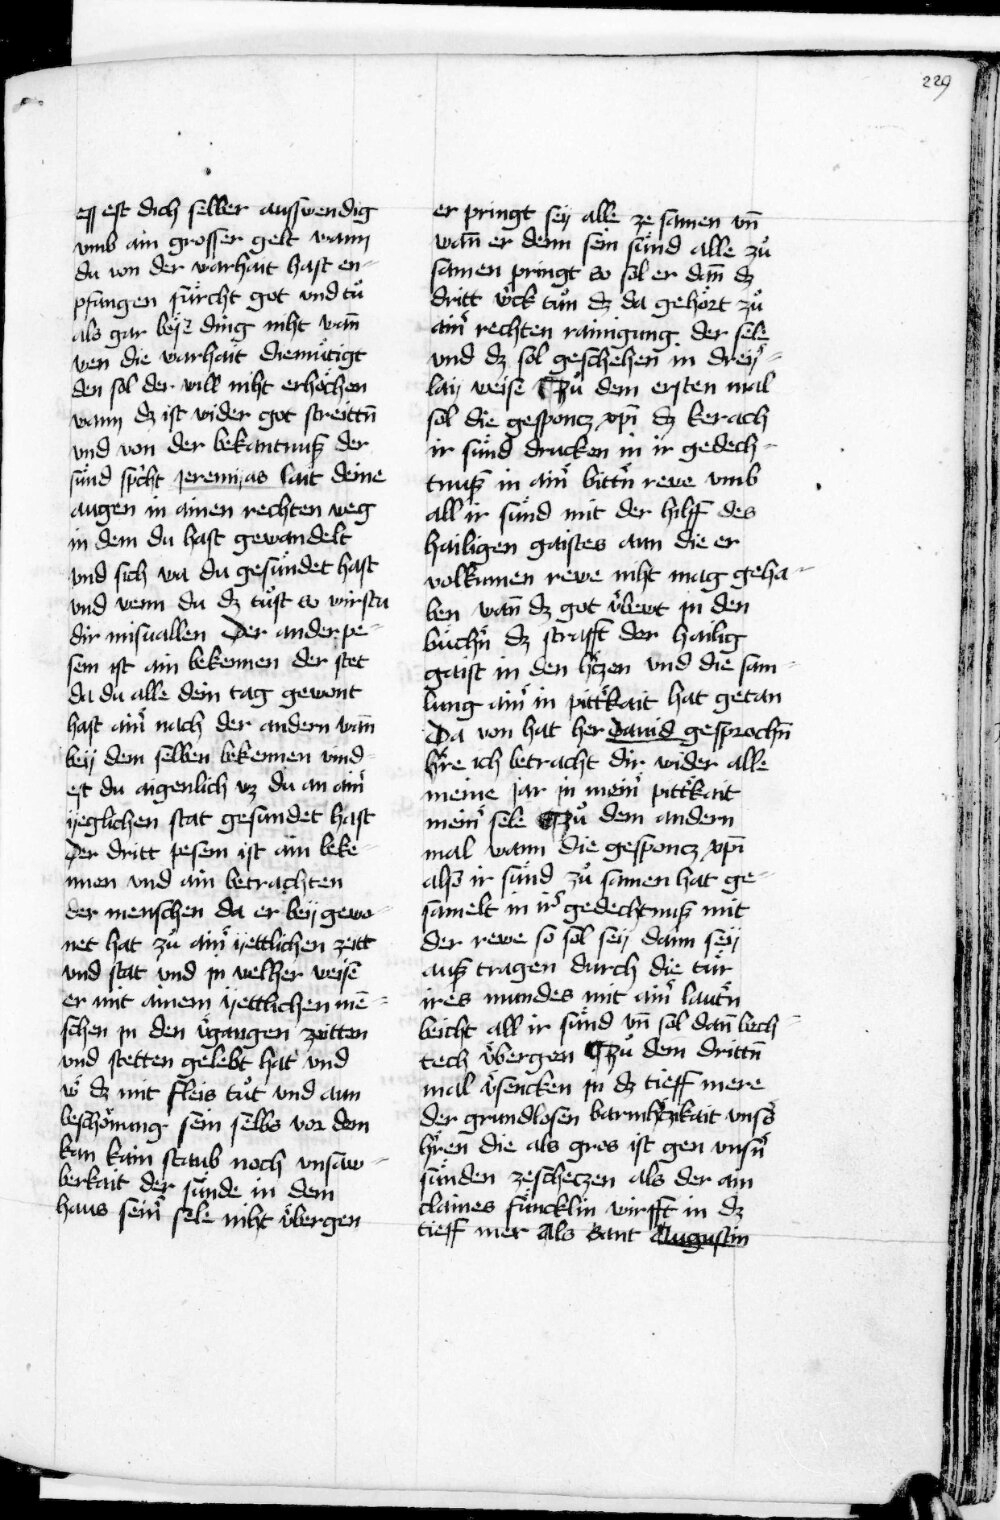 229
est dich selber ausswendig
vmb ain grosser gelt wann
du von der warhait hast en-
pfangen fürcht got vnd tů
als gar beyse ding niht wañ
wen die warhait diemütigt
den sol der will niht erhöchen
wann dz ist wider got streittñ
vnd von der bekantnuß der
sünd spͥcht Jeremyas lait deine
augen in ainen rechten weg
in dem du hast gewandelt
vnd sich wa du gesündet hast
vnd wenn du dz tůst so wirstu
dir misuallen Der ander pe-
sem ist ain bekennen der stet
da du alle dein tag gewont
hast ainͬ nach der andern wañ
beÿ dem selben bekennen vind-
est du aigenlich wz du an ainͬ
ÿeglichen stat gesündet hast
Der dritt pesem ist ain beke-
nnen vnd ain betrachten
der menschen da er beÿ gewo-
net hat zů ainͬ ÿettlichen zeitt
vnd stat vnd in welher weise
er mit ainem ÿettlichen mē-
schen in den vͬgangen zeitten
vnd stetten gelebt hat vnd
wͬ dz mit fleis tůt vnd aun
beschönung sein selbs vor dem
kan kain staub noch vnsaw-
berkait der sünde in dem
haus seinͬ sele niht vͤbergen
er pringt seÿ alle ze samen vñ
wañ er denn sein sünd alle zů
samen pringt so sol er dañ dz
dritt wͬck tůn dz da gehört zů
ainͬ rechten rainigung der sele
vnd dz sol geschehen in dreÿ-
laÿ weise Zů dem ersten mal
sol die gesponcz xp̄i dz kerach
ir sünd drucken in ir gedech-
tnuß in ainͬ bittͬn rewe vmb
all ir sünd mit der hilff des
hailigen gaistes aun die er
volkumen rewe niht mag geha-
ben wañ dz got vͤbewt in den
büchͬn dz strafft der hailig
gaist in den hͬczen vnd die sam-
lung ainͬ in pittͬkait hat getan
Da von hat her Dauid gesprochñ
hͬre ich betracht dir wider alle
meine jar in meinͬ pittͬkait
meinͬ sele Zů dem andern
mal wann die gesponcz xp̄i
also ir sünd zů samen hat ge-
samelt in irͬ gedechtnuß mit
der rewe so sol seÿ dann seÿ
auß tragen durch die tür
ires mundes mit ainͬ lautͬn
beicht all ir sünd vñ sol dañ bech-
tech vͤbergen Zů dem drittñ
mal vͬsencken in dz tieff mere
der grundlosen barmhͬczikait vnsͬs
hͬren die als gros ist gen vnsͬn
sünden zescheczen als der ain
claines füncklin wirfft in dz
tieff mer Als Sant Augustin